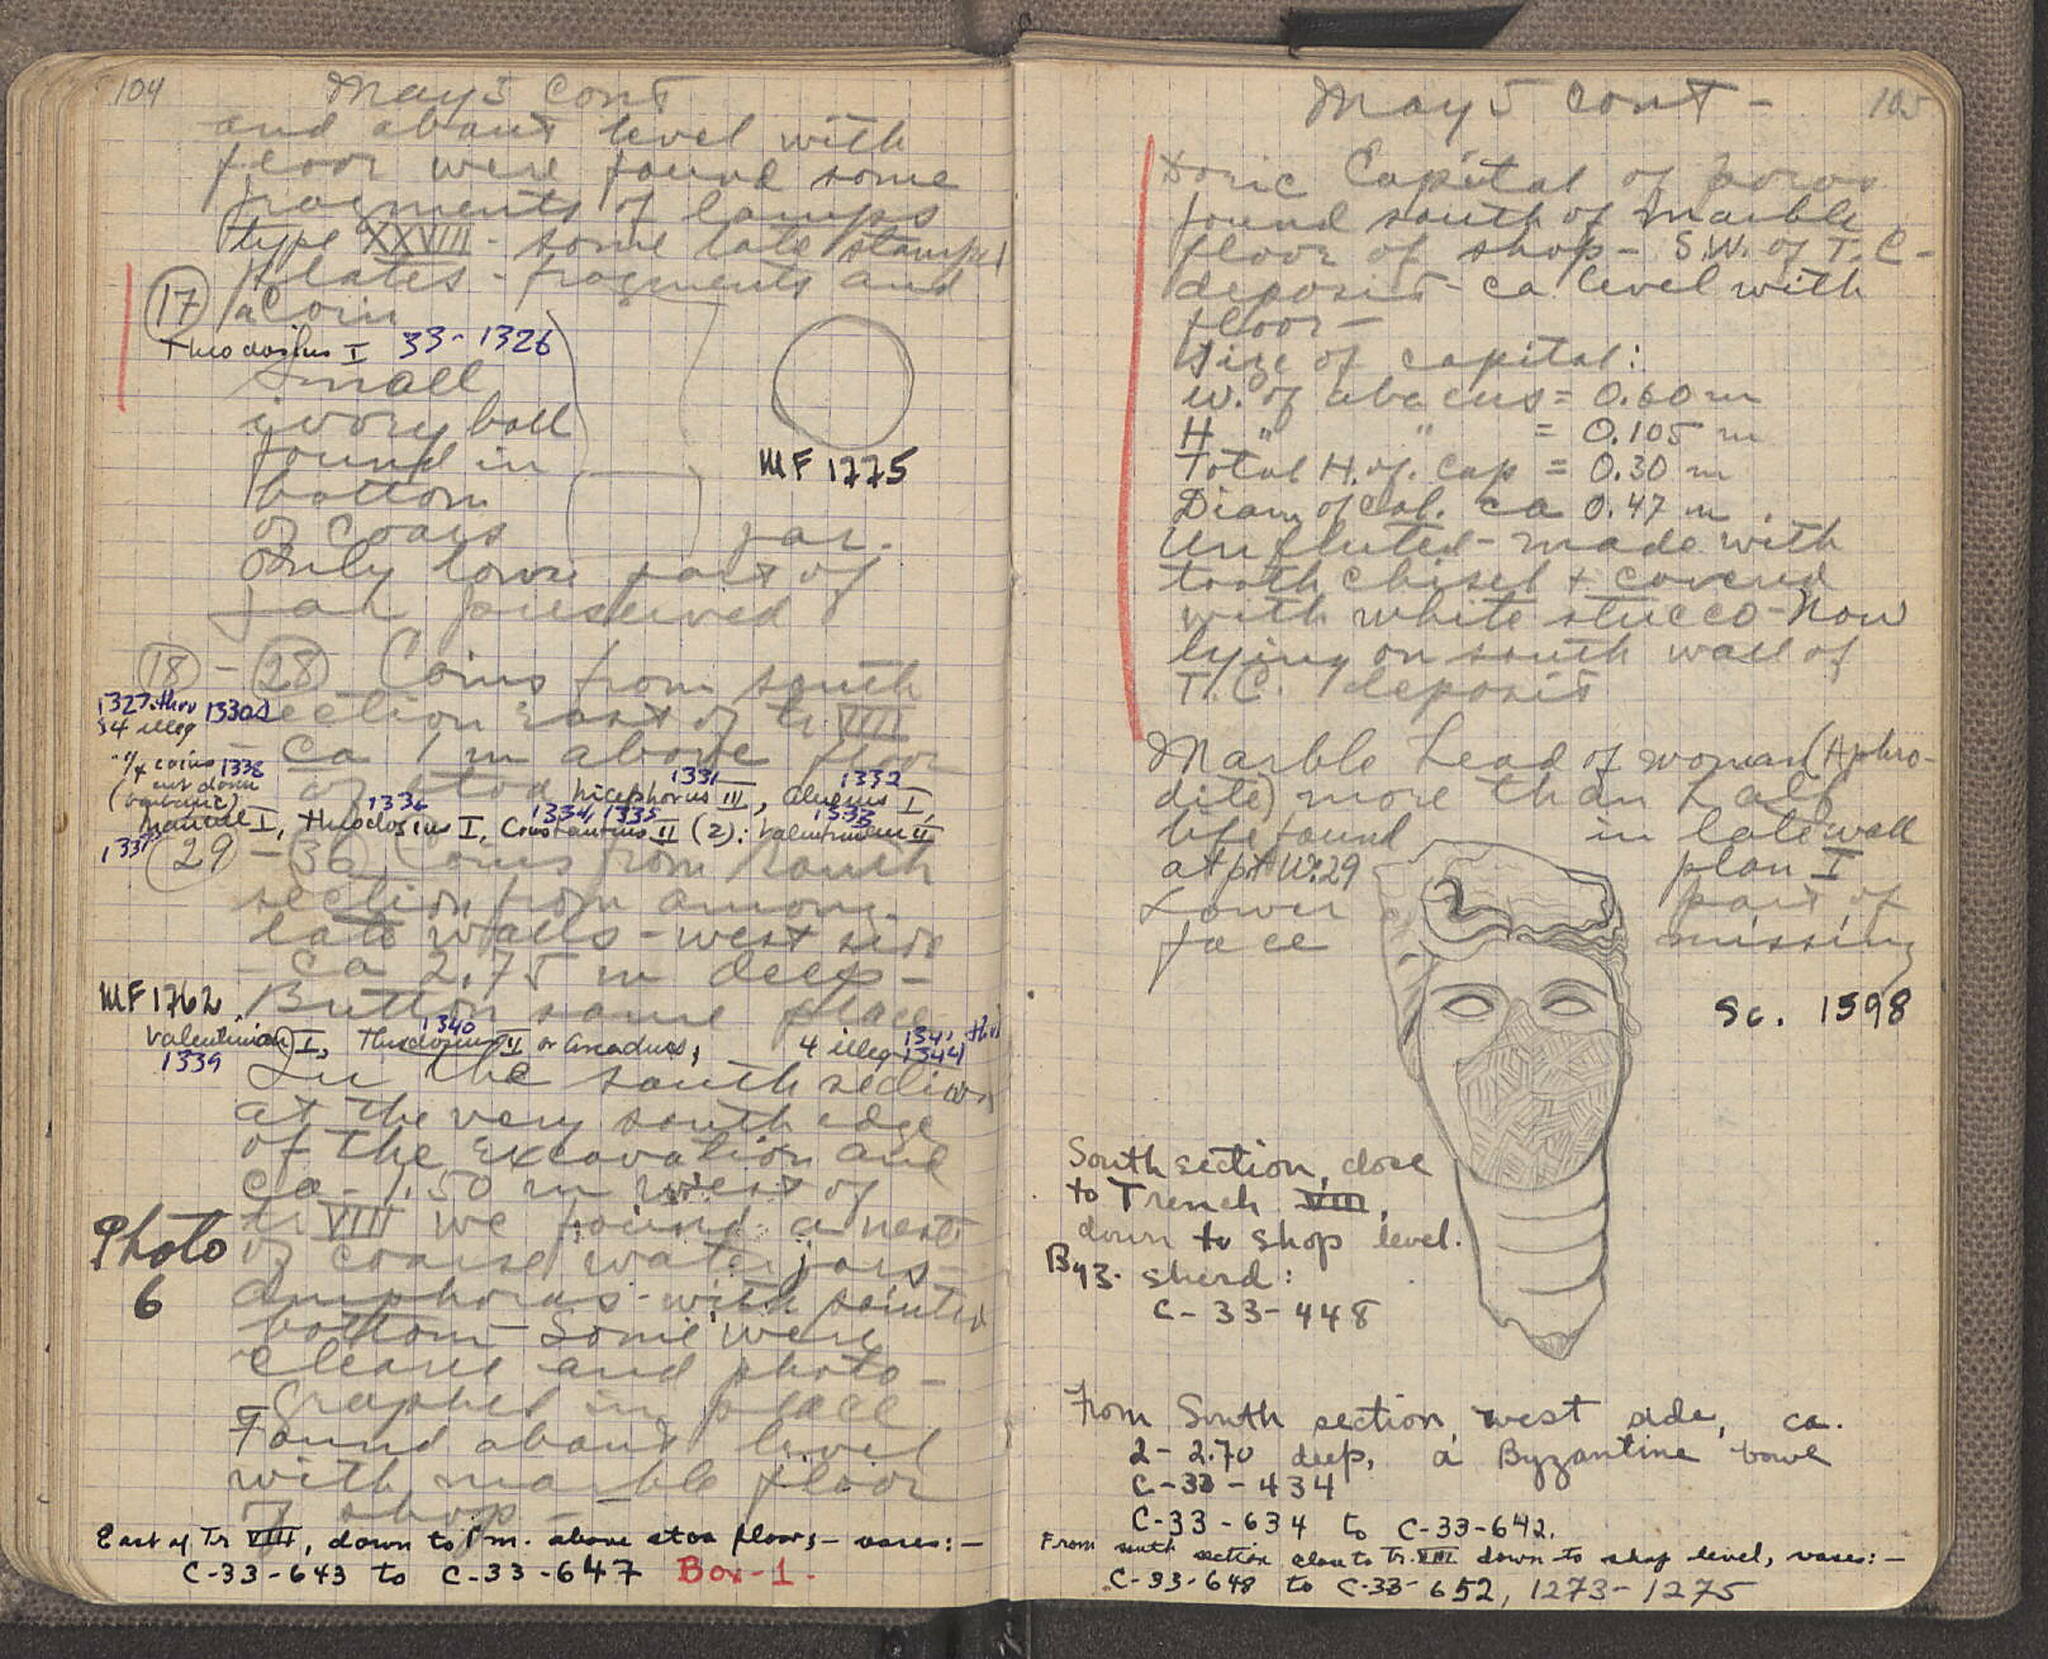 104
May 5 cont
and about level with
floor were found some
fragments of lamps
type XXVIII - some late stamped
plates - fragments and
(17) a Coin
Theodosius I 33-1326
small
ivory ball
found in
bottom
of coars jar.
MF 1775
Only lower part of
jar preserved
(18) - (28) Coins from south
1327 thru 1330
4 illeg
section east of tr VIII
- ca 1 m above floor
of stoa
1/4 coins 1338
cut down
(barbaric)
1331 1332
Nicephorus III, Alexius I,
1336 1334, 1335 1333
Manuel I, Theodosius I, Constantius II (2): Valentinian II
1337
(29) - (36) Coins from south
section from among
late walls - west side
- ca 2.75 m deep -
MF 1762 Button same place
Valentinian I, Theodosius II or Arcadius, 4 illeg 1341 thru 1344
1339 1340
In the south section
at the very south edge
of the excavation and
ca - 1.50 m west of
tr VIII we found a nest
of coarse water jars -
Photo
6
amphoras - with pointed
bottom - Some were
cleared and photo-
graphed in place
Found about level
with marble floor
of shop -
East of Tr VIII, down to 1 m. above stoa floor, - vases: -
C-33-643 to C-33-647 Box-1.
May 5 cont - 105
Doric Capital of poros
found south of marble
floor of shop - S.W. of T.C -
deposit - ca level with
floor -
Size of capital:
W. of abacus = 0.60 m
H " " = 0.105 m
Total H. of. Cap = 0.30 m
Diam of Col. ca 0.47 m.
Unfluted - made with
tooth chisel + covered
with white stucco - Now
lying on south wall of
T.C. deposit
Marble head of woman (Aphro-
dite) more than half
life found in late wall
at pt W:29 plan I
Lower part of
face missing
Sc. 1598
South section, close
to Trench VIII,
down to shop level.
Byz. sherd:
C-33-448
From South section, west side, ca.
2-2.70 deep, a Byzantine bowl
C-33-434
C-33-634 to C-33-642.
From south section close to Tr. VIII down to shop level, vases: -
C-33-648 to C-33-652, 1273-1275